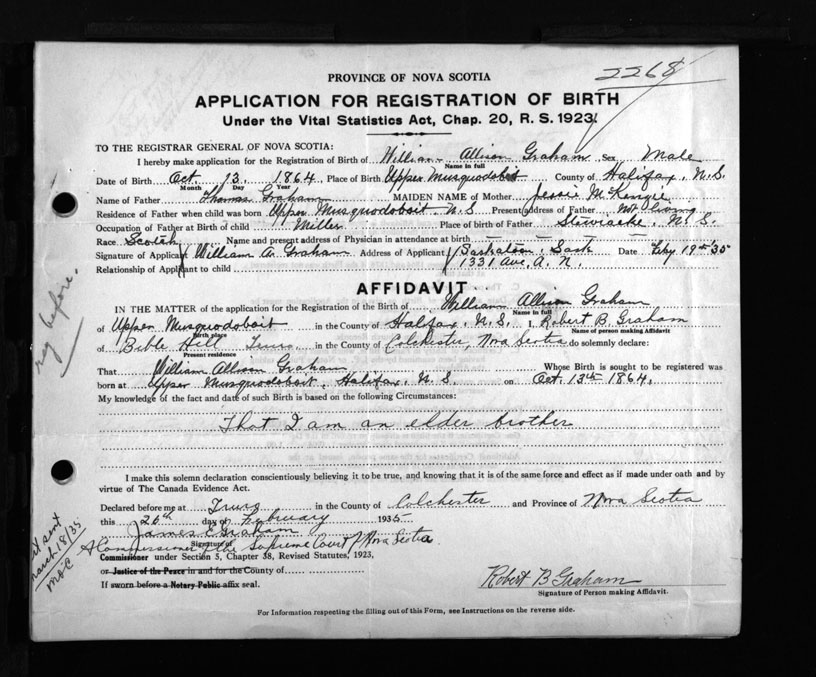 2268
PROVINCE OF NOVA SCOTIA
APPLICATION FOR REGISTRATION OF BIRTH
Under the Vital Statistics Act, Chap. 20, R. S. 1923.
TO THE REGISTRAR GENERAL OF NOVA SCOTIA:
I hereby make application for the Registration of Birth of William Allison Graham Sex Male
Name in full
Date of Birth Oct. 13. 1864, Place of Birth Upper Musquodoboit County of Halifax, N.S.
Month Day Year
Name of Father Thomas Graham MAIDEN NAME of Mother Jessie McKenzie
Residence of Father when child was born Upper Musquodoboit N.S Present address of Father Not Living
Occupation of Father at Birth of Child Miller Place of birth of Father Stewiacke, N. S.
Race Scotch Name and present address of Physician in attendance at birth
Signature of Applicant William A. Graham Address of Applicant Saskatoon, Sask Date Feby 19th 35
Relationship of Applicant to child 1331 Ave. A. N.
AFFIDAVIT
IN THE MATTER of the application for the Registration of the Birth of William Allison Graham
Name in full
of Upper Musquodoboit in the County of Halifax, N.S. I, Robert B. Graham
Birth place Name of person making Affidavit
of Bible Hill Truro in the County of Colchester, Nova Scotia do solemnly declare:
Present residence
That William Allison Graham Whose Birth is sought to be registered was
born at Upper Musquodoboit, Halifax, N. S. on Oct. 13th 1864,
My knowledge of the fact and date of such Birth is based on the following Circumstances:
That I am an elder brother
I make this solemn declaration conscientiously believing it to be true, and knowing that it is of the same force and effect as if made under oath and by
virtue of The Canada Evidence Act.
Declared before me at Truro in the County of Colchester and Province of Nova Scotia
this 26th day of February 1935
James E Graham
Signature of
A Commissioner of the Supreme Court of Nova Scotia
Commissioner under Section 5, Chapter 38, Revised Statutes, 1923,
or Justice of the Peace in and for the County of
If sworn before a Notary Public affix seal.
Robert B Graham
Signature of Person making Affidavit.
For Information respecting the filling out of this Form, see Instructions on the reverse side.
reg before.
sent
March 18/35